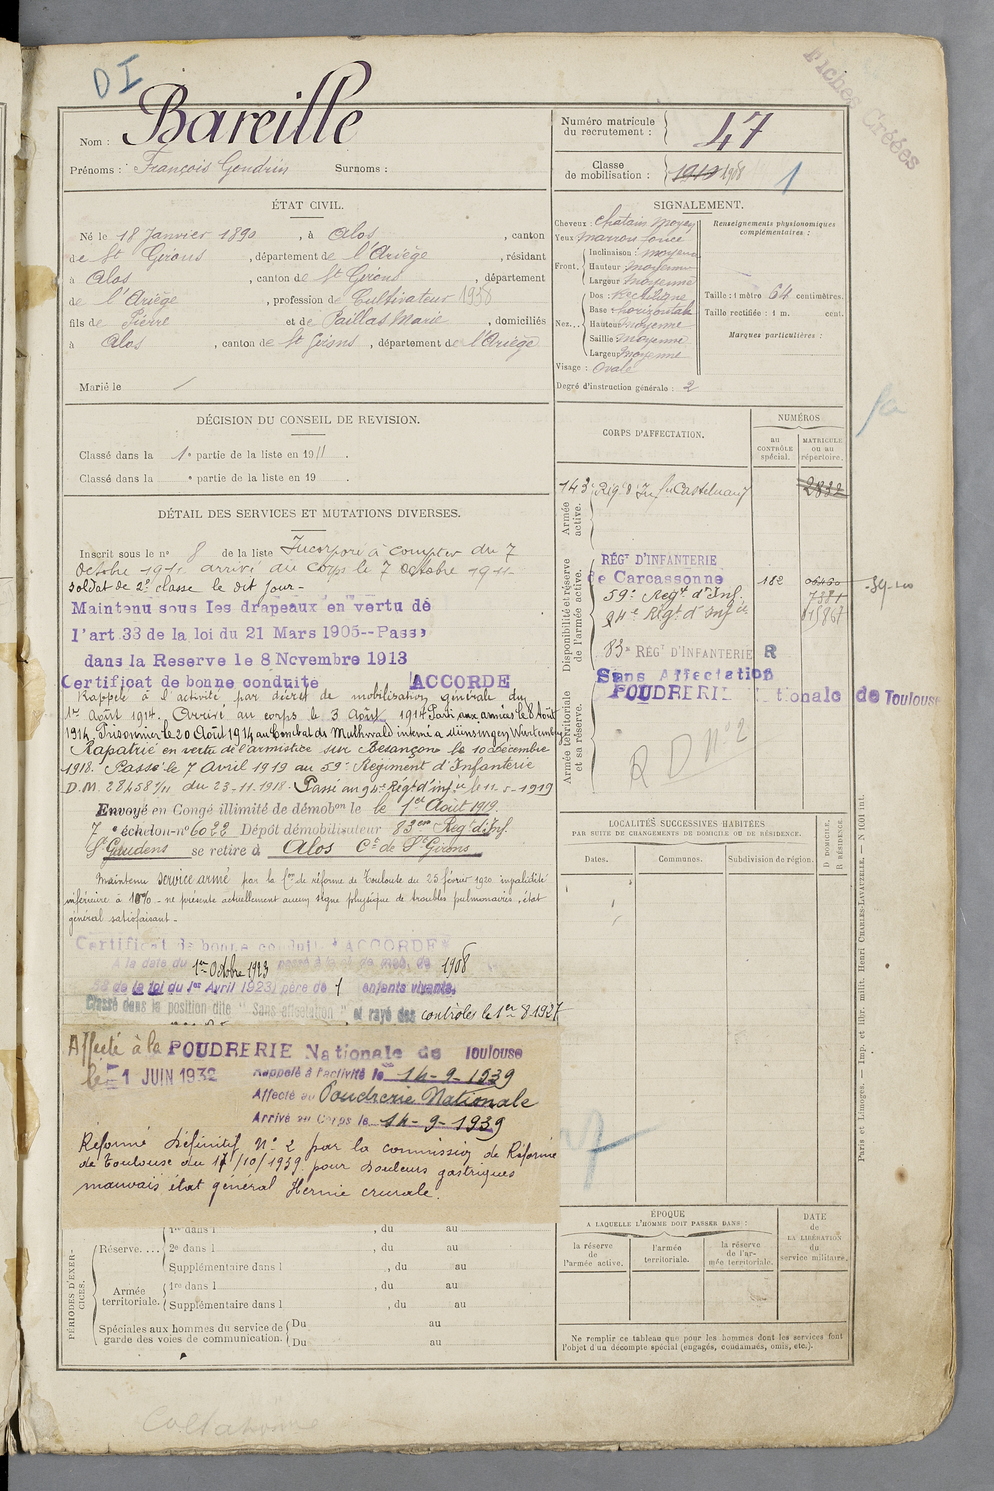 DI
Fiches Créées
Nom : Bareille
Prénoms : François Gondrin Surnoms :
Numéro matricule du recrutement : 47
Classe de mobilisation : 1910 1908 1
ÉTAT CIVIL.
Né le 18 Janvier 1890, à Alos, canton
de St Girons, département de l'Ariège, résidant
à Alos, canton de St Girons, département
de l'Ariège, profession de Cultivateur 1938
fils de Pierre et de Paillas Marie, domiciliés
à Alos, canton de St Girons, département de l'Ariège
Marié le /
SIGNALEMENT.
Cheveux : Chatain moyen
Yeux marron foncé
Front. Inclinaison : moyenne
Hauteur moyenne
Largeur moyenne
Nez... Dos : rectiligne
Base horizontale
Hauteur moyenne
Saillie moyenne
Largeur moyenne
Visage : ovale
Degré d'instruction générale : 2
Renseignements physionomiques complémentaires :
Taille : 1 mètre 64 centimètres.
Taille rectifiée : 1 m. cent.
Marques particulières :
DÉCISION DU CONSEIL DE REVISION.
Classé dans la 1e partie de la liste en 1911.
Classé dans la e partie de la liste en 19 .
DÉTAIL DES SERVICES ET MUTATIONS DIVERSES.
Inscrit sous le no 8 de la liste Incorporé à compter du 7
Octobre 1911 arrivé au corps le 7 Octobre 1911
soldat de 2e classe le dit jour -
Maintenu sous les drapeaux en vertu de
l'art 33 de la loi du 21 Mars 1905--Passé
dans la Reserve le 8 Novembre 1913
Certificat de bonne conduite ACCORDE
Rappelé à l'activité par décret de mobilisation générale du
1er Août 1914. Arrivé au corps le 3 Août 1914 Parti aux armées le 8 Août
1914, Prisonnier le 20 Août 1914 au Combat de Muthwald interné à Münsingen Wurtemberg
Rapatrié en vertu de l'armistice sur Besançon le 10 décembre
1918. Passé le 7 Avril 1919 au 59e Régiment d'Infanterie
D.M. 28458/11 du 23-11-1918. Passé au 94e Régt d'infie le 11-5-1919
Envoyé en Congé illimité de démobon le 1er Août 1919.
7e échelon-no 6022 Dépôt démobilisateur 83eme Régt d'Inf.
St Gaudens se retire à Alos Con de St Girons
Maintenu service armé par la Con de réforme de Toulouse du 25 février 1920 invalidité
inférieure à 10% - ne présente actuellement aucun signe physique de troubles pulmonaires, état
général satisfaisant -
Certificat de bonne conduite "ACCORDE"
A la date du 1er Octobre 1923 passé à la cl. de mob. de 1908
58 de la loi du 1er Avril 1923) père de 1 enfants vivants.
Classé dans la position dite " Sans affectation " et rayé des contrôles le 1er 8 1927
Affecté à la POUDRERIE Nationale de Toulouse
le -1 JUIN 1932
Rappelé à l'activité le 14-9-1939
Affecté au Poudrerie Nationale
Arrivé au Corps le 14-9-1939
Réformé définitif No 2 par la commission de Réforme
de Toulouse du 17/10/1939 pour douleurs gastriques
mauvais état général Hernie crurale.
PÉRIODES D'EXERCICES.
1re dans l , du au
Réserve.... 2e dans l , du au
Supplémentaire dans l , du au
Armée territoriale. 1re dans l , du au
Supplémentaire dans l , du au
Spéciales aux hommes du service de garde des voies de communication. Du au
Du au
CORPS D'AFFECTATION.
NUMÉROS
au CONTRÔLE spécial.
MATRICULE ou au répertoire.
Armée active.
143e Régt d'Inf. Castelnaudary 2832
Disponibilité et réserve de l'armée active.
RÉGT D'INFANTERIE
de Carcassonne 182
59e Régt d'Inf. 7381
94e Régt d'Infie 15867
83e RÉGT D'INFANTERIE R
Sans Affectation
POUDRERIE Nationale de Toulouse
Armée territoriale et sa réserve.
R D No 2
LOCALITÉS SUCCESSIVES HABITÉES
PAR SUITE DE CHANGEMENTS DE DOMICILE OU DE RÉSIDENCE.
Dates. Communes. Subdivision de région.
D DOMICILE. R RÉSIDENCE.
ÉPOQUE
A LAQUELLE L'HOMME DOIT PASSER DANS :
la réserve de l'armée active.
l'armée territoriale.
la réserve de l'armée territoriale.
DATE de LA LIBÉRATION du service militaire.
Ne remplir ce tableau que pour les hommes dont les services font
l'objet d'un décompte spécial (engagés, condamnés, omis, etc.).
Paris et Limoges. — Imp. et libr. milit. Henri CHARLES-LAVAUZELLE. — N 1031 int.